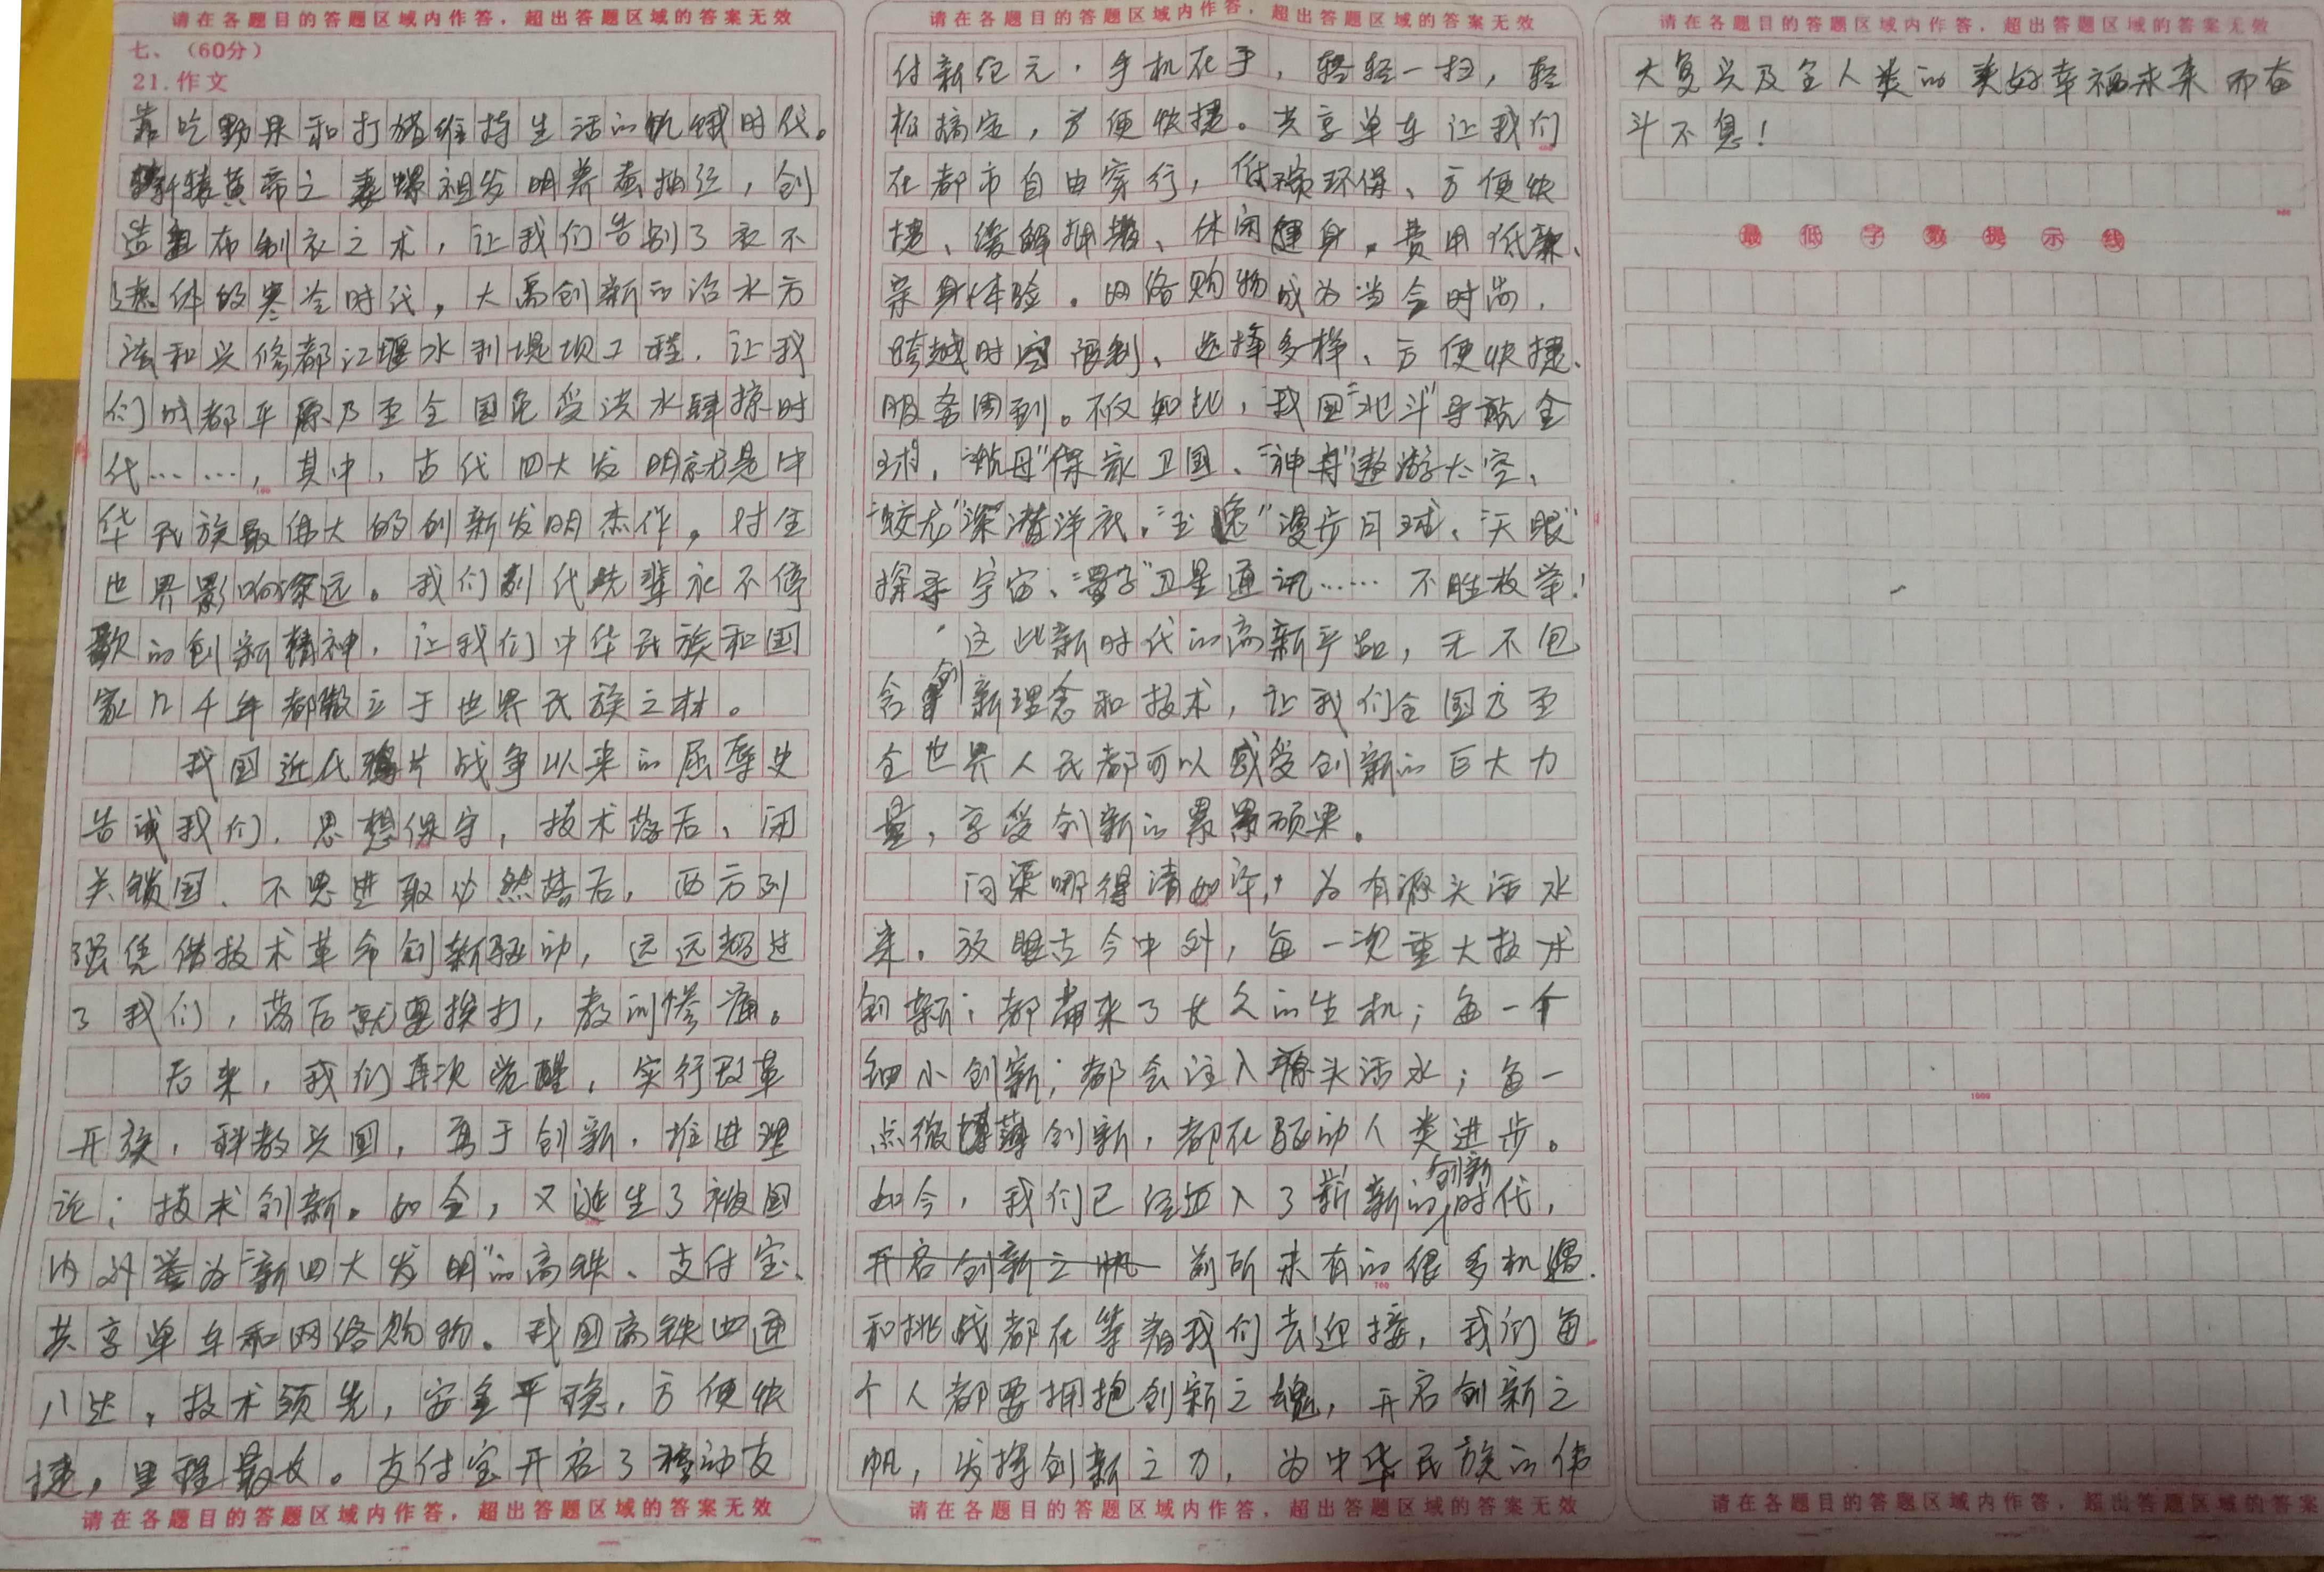 请在各题目的答题区域内作答，超出答题区域的答案无效
七、（60分）
21.作文
靠吃野果和打猎维持生活的饥饿时代。
轩辕黄帝之妻嫘祖发明养蚕抽丝，创
造布制衣之术，让我们告别了衣不
遮体的寒冷时代。大禹创新的治水方
法和兴修都江堰水利堤坝工程，让我
们成都平原乃至全国免受洪水肆掠时
代……，其中，古代四大发明就是中
华民族最伟大的创新发明杰作，对全
世界影响深远。我们列代先辈永不停
歇的创新精神，让我们中华民族和国
家几千年都傲立于世界民族之林。
我国近代鸦片战争以来的屈辱史
告诫我们，思想保守，技术落后、闭
关锁国、不思进取必然落后，西方列
强凭借技术革命创新驱动，远远超过
了我们，落后就要挨打，教训惨痛。
后来，我们再次觉醒，实行改革
开放，科教兴国，勇于创新，推进理
论；技术创新。如今，又诞生了被国
内外誉为“新四大发明”的高铁、支付宝、
共享单车和网络购物。我国高铁四通
八达，技术领先，安全平稳，方便快
捷，里程最长。支付宝开启了移动支
请在各题目的答题区域内作答，超出答题区域的答案无效
请在各题目的答题区域内作答，超出答题区域的答案无效
付新纪元，手机在手，轻轻一扫，轻
松搞定，方便快捷。共享单车让我们
在都市自由穿行，低碳环保、方便快
捷、缓解拥堵、休闲健身，费用低廉、
亲身体验。网络购物成为当今时尚，
跨越时空限制、选择多样、方便快捷、
服务周到。不仅如此，我国“北斗”导航全
球，“航母”保家卫国、“神舟”遨游太空、
“蛟龙”深潜洋底，“玉兔”漫步月球、“天眼”
探寻宇宙、“墨子”卫星通讯……不胜枚举！
这些新时代的高新产品，无不包
含创新理念和技术，让我们全国乃至
全世界人民都可以感受创新的巨大力
量，享受创新的累累硕果。
问渠哪得清如许，为有源头活水
来。放眼古今中外，每一次重大技术
创新；都带来了长久的生机；每一个
细小创新；都会注入源头活水；每一
点微薄创新，都在驱动人类进步。
如今，我们已经迈入了崭新的创新时代，
开启创新之帆 前所未有的很多机遇
和挑战都在等着我们去迎接，我们每
个人都要拥抱创新之魂，开启创新之
帆，发挥创新之力，为中华民族的伟
请在各题目的答题区域内作答，超出答题区域的答案无效
请在各题目的答题区域内作答，超出答题区域的答案无效
大复兴及全人类的美好幸福未来而奋
斗不息！
最低字数提示线
1000
请在各题目的答题区域内作答，超出答题区域的答案